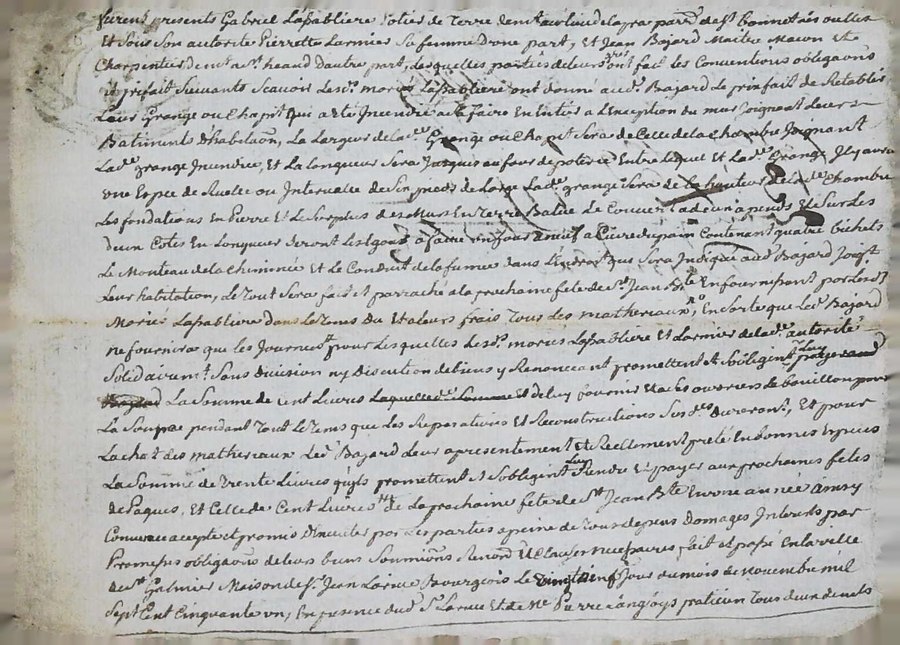 furent presents Gabriel Lapabliere Potier de Terre demt au lieu de la parse de St Bonnet
Et Sous Son autorité Pierrette Larmier Sa femme D'une part, Et Jean Bajard Maitre Macon Et
Charpentier demt a St heand Dautre part, Lesquelles parties de leurs ont fait les Conventions obligaons
prifait Suivants Scavoir Les dts mariés Lapabliere ont donné aud. Bajard Le prinfait de Retablir
Leur Grange ou Chapit Qui a été Incendié a la faire En Entier a L'exception du mur Joignant leurs
Batiments D'habitaon, La Largeur de lade Grange ou Chapit Sera de Celle de la Chambre Joignant
Lade grange Incendiée, Et La longueur Sera Jusques au four de poterie Entre lequel Et lade Grange Il y aura
une Espece de Ruelle ou Intervalle de Six pieds de Large Lade grange Sera de la hauteur de lade Chambre
Les fondations En Pierre Et Le Surplus des Murs En Terre Batue Le Couvert a deux apends Et Sur Les
deux Cotés En Longueur Seront Les Egouts, a faire un four a Cuire du pain Contenant quatre bichets
Le Manteau de la Chiminée Et Le Conduit de la fumée dans L'endroit qui Sera Indiqué aud Bajard
Leur habitation, Le Tout Sera fait Et parraché a la prochaine fete de St Jean Bte En fournissant par Lesd
Mariés Lapabliere dans le tems du Et a leurs frais Tous Les matheriaux, En Sorte que Led Bajard
ne fournira que les Journées pour Lesquelles Lesd. mariés Lapabliere Et Larmier de lade autorité
Solidairemt Sans division ny Discution de biens y Renoncant promettent Et S'obligent Luy payer
La Somme de Cent Livres Et de luy fournir Et a Ses ouvriers de bouillon pour
La Soupe pendant Tout Le Tems que Les Reparations Et Reconstructions Susdes dureront, Et pour
L'achat des matheriaux Led Bajard Leur a presentement Et Reellement preté En bonnes Especes
La Somme de Trente Livres qu'ils promettent Et S'obligent Luy Rendre Et payer aux prochaines fetes
de Paques, Et Celle de Cent Livres de La prochaine fete de St Jean Bte En une année Ainsy
Convenu accepté Et promis D'executer par Les parties a peine de Tous depens Domages Interests par
Promesses obligaons de leurs biens Soumissions Renonons Et Clauses necessaires, fait Et passé En la ville
de St Galmier Maison de Sr Jean Larue Bourgeois Le Jour du mois de novembre mil
Sept Cent Cinquante un, En presence dud Sr Larue Et de Me Pierre Langloys praticien Tous deux